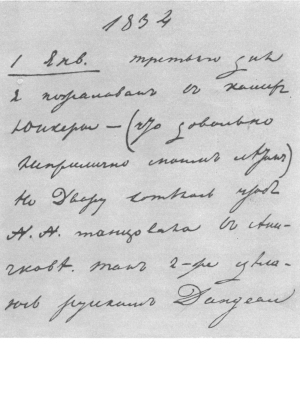 1834
1 Янв. третьего дня
я пожалованъ въ камеръ
юнкеры — (что довольно
неприлично моимъ лѣтамъ)
Но Двору хотѣлось чтоб
N. N. танцовала въ Ани-
чковѣ. такъ я-же сдѣла-
юсь рускимъ Dangeau